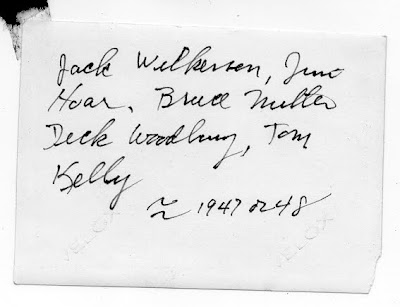 Jack Wilkerson, Jim
Hoar, Bruce Miller
Dick Woodbury, Tom
Kelly
≈ 1947 or 48
VELOX
VELOX